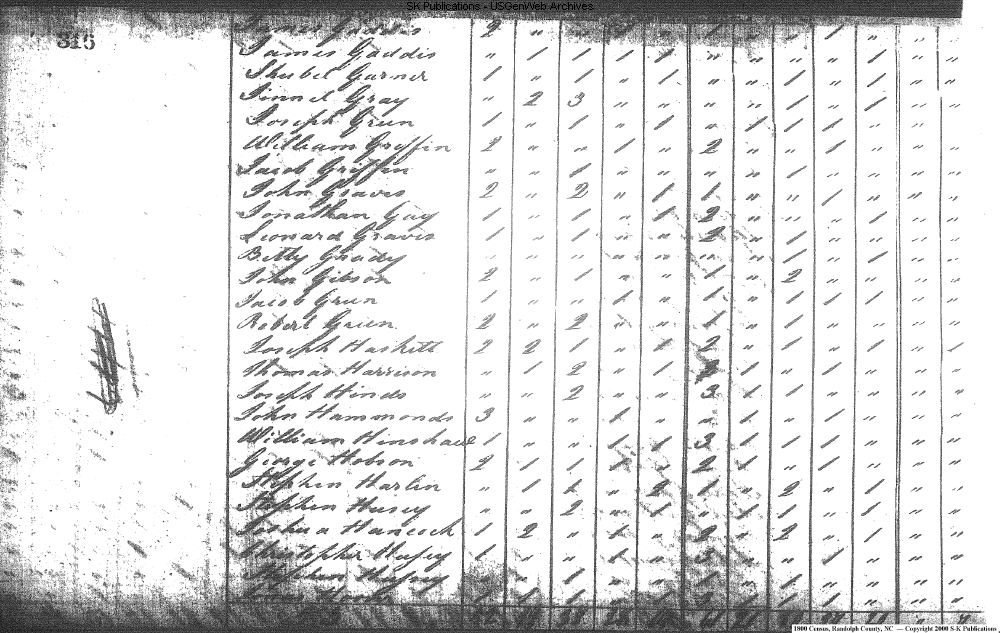 SK Publications - USGenWeb Archives
315
James Gaddis " / / / / " " " " / " "
Shubel Garner / " / " / " / / " / " "
Gray " 2 3 " " " " / " / " "
Joseph Green / " / " / " / / / " " "
William Griffin 2 " " / " 2 " " / " " "
Jacob Griffin " " / " " " " / " " " "
John Graves 2 " 2 " / / " / / " " "
Jonathan Guy / " / " / 2 " " " / " "
Leonard Graves / " / " " 2 " / " " " "
Betty Grady " " " " " " " " " / " "
John Gibson 2 " / " " / " 2 " " " "
Jacob Green / " " / " / " / / / " "
Robert Green 2 " 2 " " / " / " " " "
Joseph Haskett 2 2 / " / 2 " / " / " /
Thomas Harrison " / 2 " / / " / " " "
Joseph Hinds " " 2 " " 3 / / " " " "
John Hammonds 3 " " / " " / / "
William Hinshaw / " " / / 3 / / / " " "
George Hobson 2 / / " / 2 / / / " " "
Stephen Harlin " / / " 2 / " 2 " / " "
Stephen Husey " " 2 " / " / / / "
Joshua Hancock / 2 " / " 2 " 2 " / " "
Christopher Husey / " " / " 3 " " / " " "
1800 Census, Randolph County, NC — Copyright 2000 S-K Publications